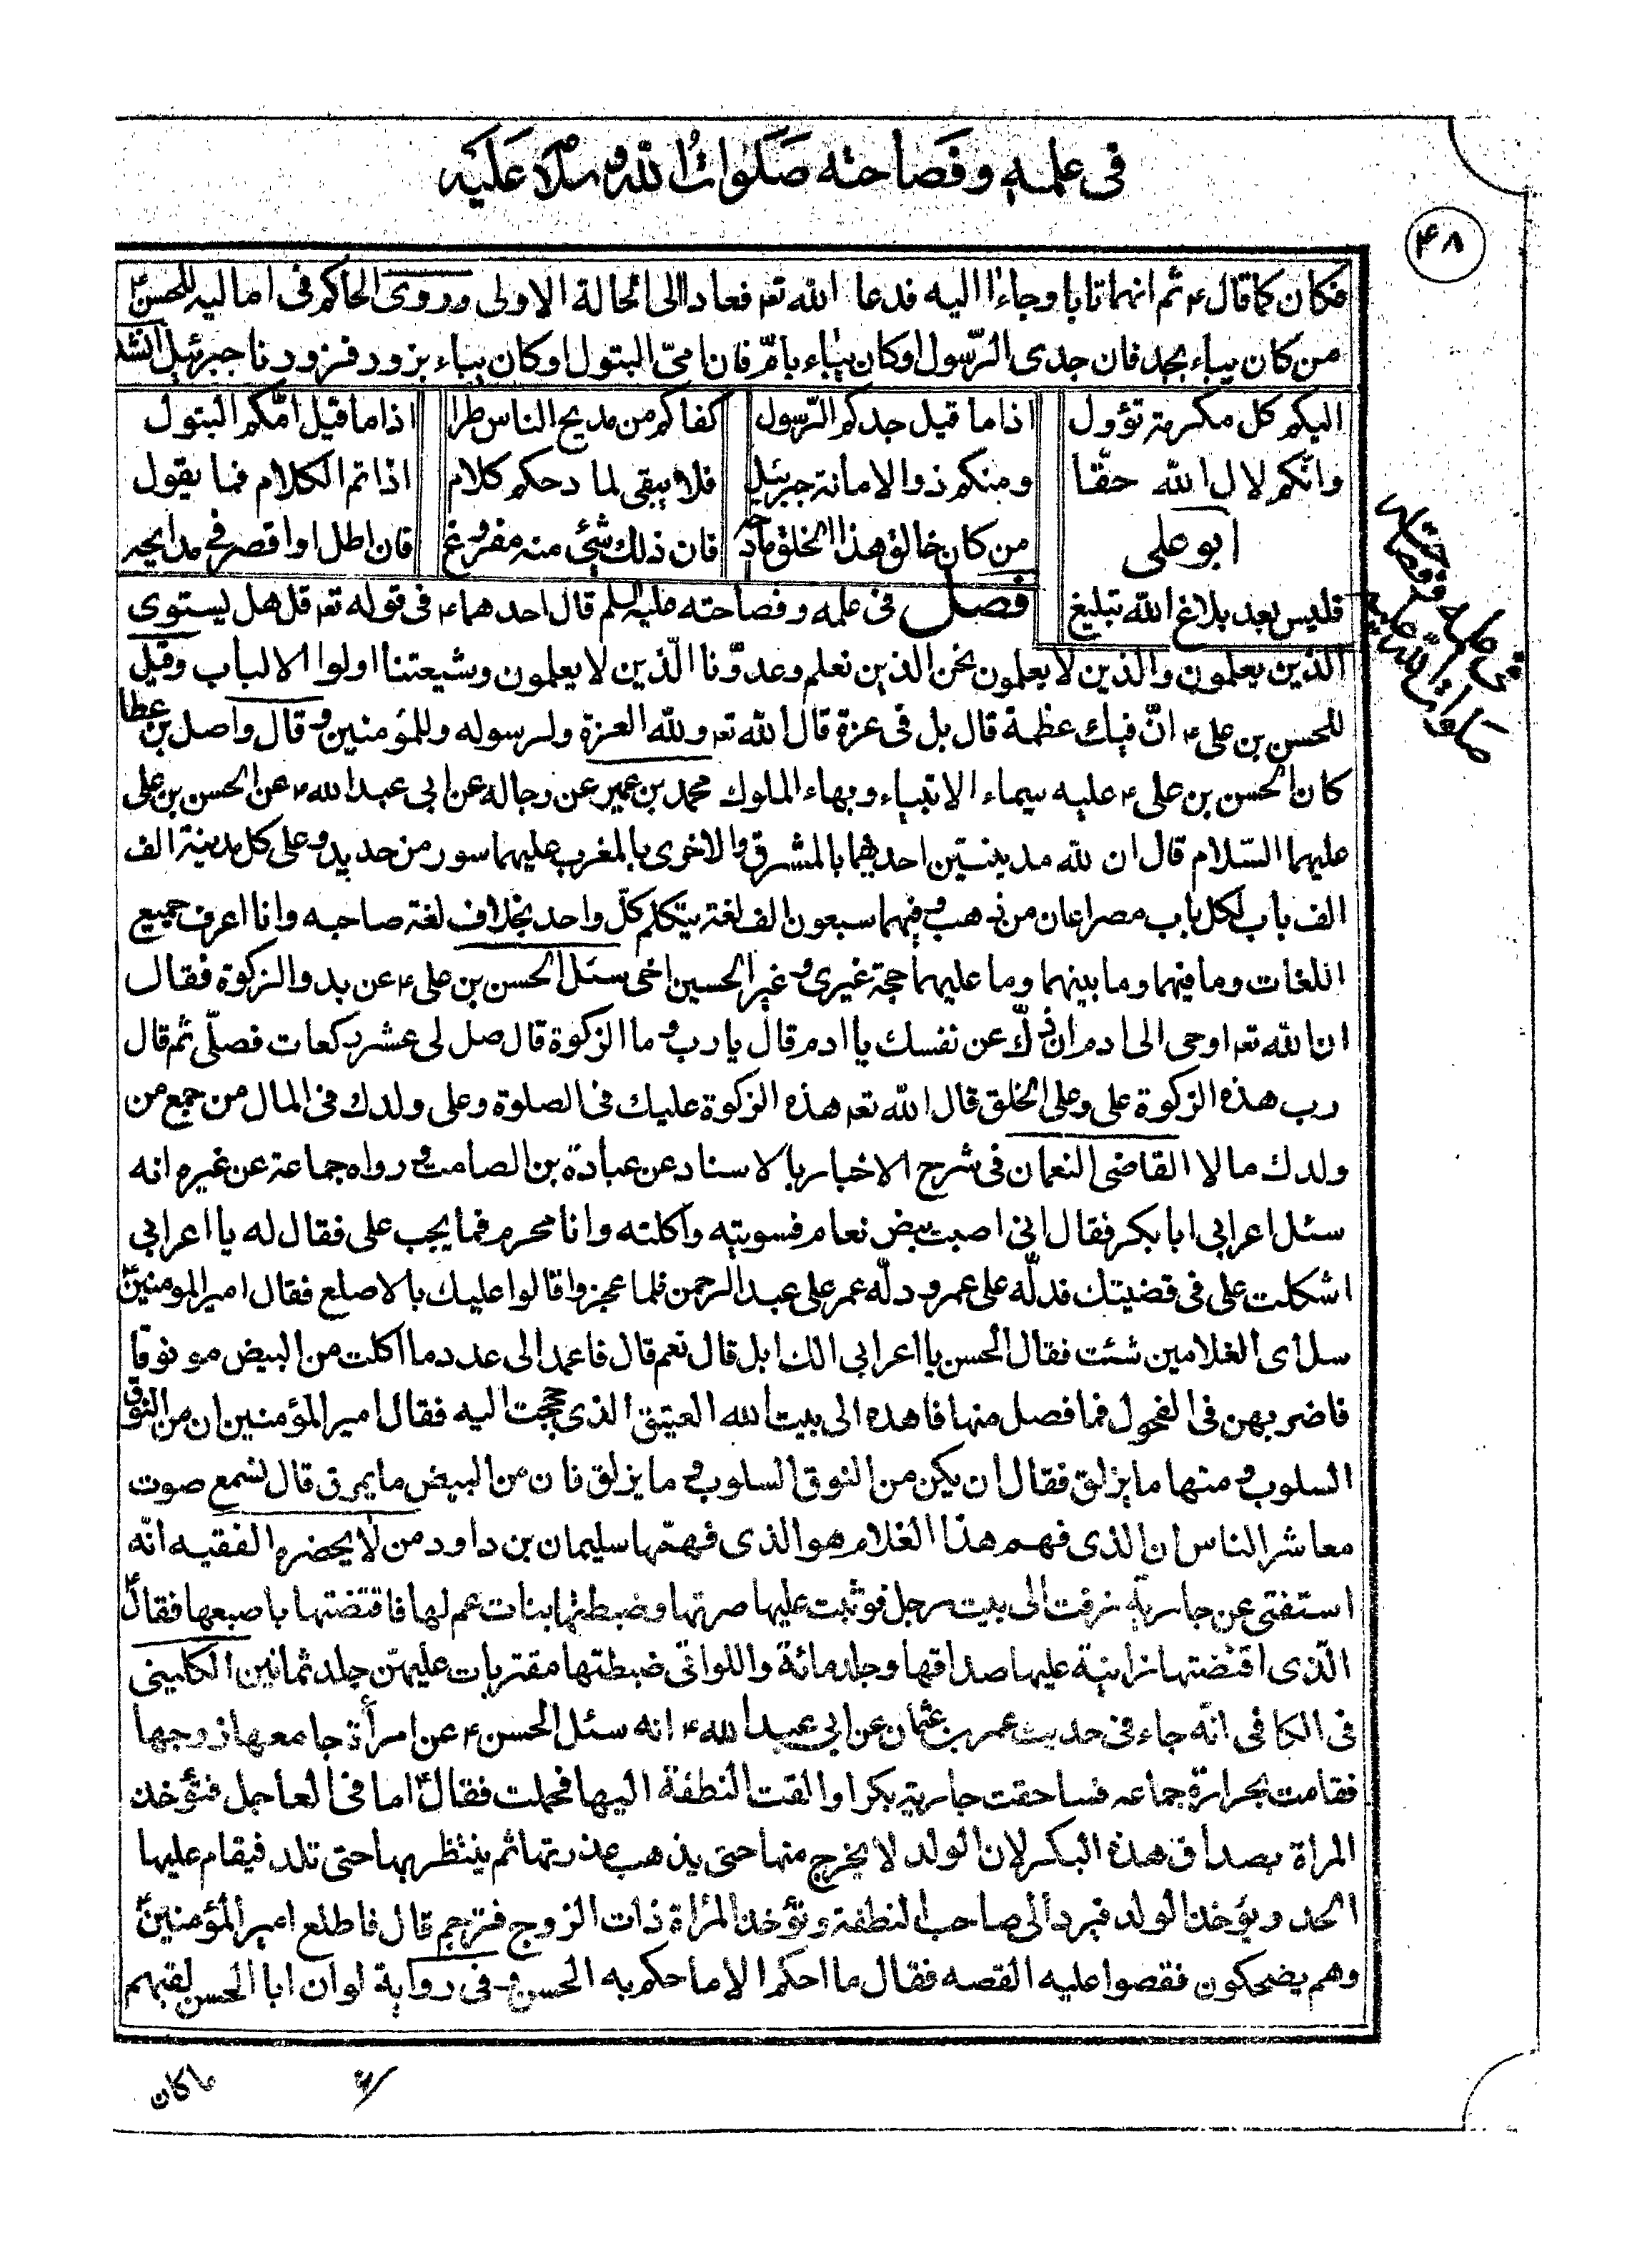 فى علمه وفصاحته صلوات الله وسلامه عليه
۴۸
فكان كما قال ۴ ثم انهما تابا وجاءا اليه فدعا الله تعه فعادا الى الحالة الاولى وروى الحاكم فى اماليه للحسن ۴
من كان يباء بجد فان جدى الرّسول او كان يباء بامّ فان امىّ البتول او كان يباء بزور فزورنا جبرئيل انشد
اليكم كل مكرمة تؤول اذا ما قيل جدكم الرّسول كفاكم من مديح الناس طرا اذا ما قيل امّكم البتول
وانّكم لال الله حقّا ومنكم ذوالامانة جبرئيل فلا يبقى لمادحكم كلام اذا تم الكلام فما يقول
ابو على من كان خالق هذا الخلق مادحه فان ذلك شئ منه مفروغ فان اطل او اقصر فى مدايحه
فليس بعد بلاغ الله تبليغ فصل فى علمه وفصاحته عليه السلم قال احدهما ۴ فى قوله تعه قل هل يستوى
الذين يعلمون والذين لا يعلمون نحن الذين نعلم وعدوّنا الّذين لا يعلمون وشيعتنا اولوا الالباب وقيل
للحسن بن على ۴ انّ فيك عظمة قال بل فى عزة قال الله تعه ولله العزة ولرسوله وللمؤمنين وقال واصل بن عطا
كان الحسن بن على ۴ عليه سيماء الانبياء وبهاء الملوك محمد بن عمير عن رجاله عن ابى عبد الله ۴ عن الحسن بن على
عليهما السّلام قال ان لله مدينتين احدهما بالمشرق والاخرى بالمغرب عليهما سور من حديد وعلى كل مدينة الف
الف باب لكل باب مصراعان من ذهب وفيهما سبعون الف لغة يتكلم كلّ واحد بخلاف لغة صاحبه وانا اعرف جميع
اللغات وما فيهما وما بينهما وما عليهما حجة غيرى وغير الحسين اخى سئل الحسن بن على ۴ عن بدو الزكوة فقال
ان الله تعه اوحى الى ادم ان زكّ عن نفسك يا ادم قال يا رب وما الزكوة قال صل لى عشر ركعات فصلّى ثم قال
رب هذه الزكوة على وعلى الخلق قال الله تعه هذه الزكوة عليك فى الصلوة وعلى ولدك فى المال من جمع من
ولدك مالا القاضى النعمان فى شرح الاخبار بالاسناد عن عبادة بن الصامت ورواه جماعة عن غيره انه
سئل اعرابى ابا بكر فقال انى اصبت بيض نعام فسويته واكلته وانا محرم فما يجب على فقال له يا اعرابى
اشكلت على فى قضيتك فدلّه على عمر ودلّه عمر على عبد الرحمن فلما عجزوا قالوا عليك بالاصلع فقال امير المومنين ۴
سل اى الغلامين شئت فقال الحسن يا اعرابى الك ابل قال نعم قال فاعمد الى عدد ما اكلت من البيض مو نوقا
فاضربهن فى الفحول فما فصل منها فاهده الى بيت الله العتيق الذى حججت اليه فقال امير المؤمنين ان من النوق
السلوب ومنها ما يزلق فقال ان يكن من النوق السلوب وما يزلق فان من البيض ما يمرق قال فسمع صوت
معاشر الناس ان الذى فهم هذا الغلام هو الذى فهّمها سليمان بن داود من لا يحضره الفقيه انّه
استفتى عن جارية زفت الى بيت رجل فوثبت عليها ضرتها وضبطتها بنات عم لها فاقتضتها باصبعها فقال ۴
الّذى اقتضتها زانية عليها صداقها وجلد مائة واللواتى ضبطتها مفتريات عليهنّ جلد ثمانين الكلينى
فى الكافى انّه جاء فى حديث عمر بن عثمان عن ابى عبد الله ۴ انه سئل الحسن ۴ عن امرأة جامعها زوجها
فقامت بحرارة جماعه فساحقت جارية بكرا والقت النطفة اليها فحملت فقال ۴ اما فى العاجل فتؤخذ
المراة بصداق هذه البكر لان الولد لا يخرج منها حتى يذهب عذرتها ثم ينتظر بها حتى تلد فيقام عليها
الحد ويؤخذ الولد فيرد الى صاحب النطفة وتؤخذ المرأة ذات الزوج فترجم قال فاطلع امير المؤمنين ۴
وهم يضحكون فقصوا عليه القصه فقال ما احكم الا ما حكم به الحسن وفى رواية لو ان ابا الحسن لقيهم
فى علمه وفصاحته
صلوات الله عليه
ما كان